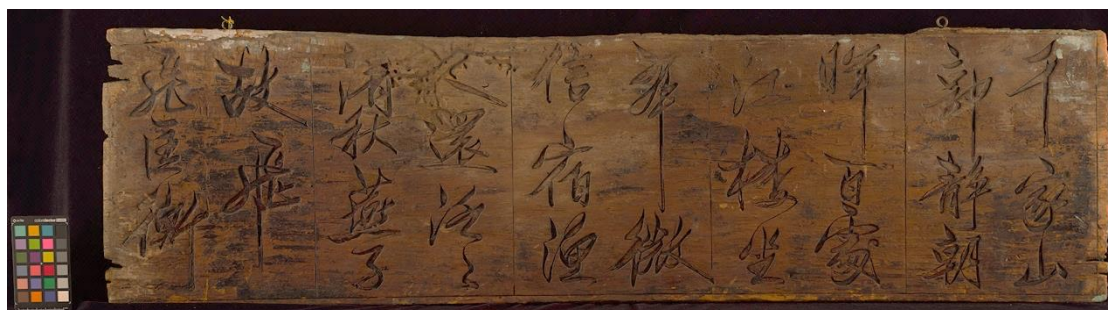 千家山
郭靜朝
暉百處
江樓坐
翠微
信宿漁
人還泛〻
清秋燕子
故飛
飛匡衡